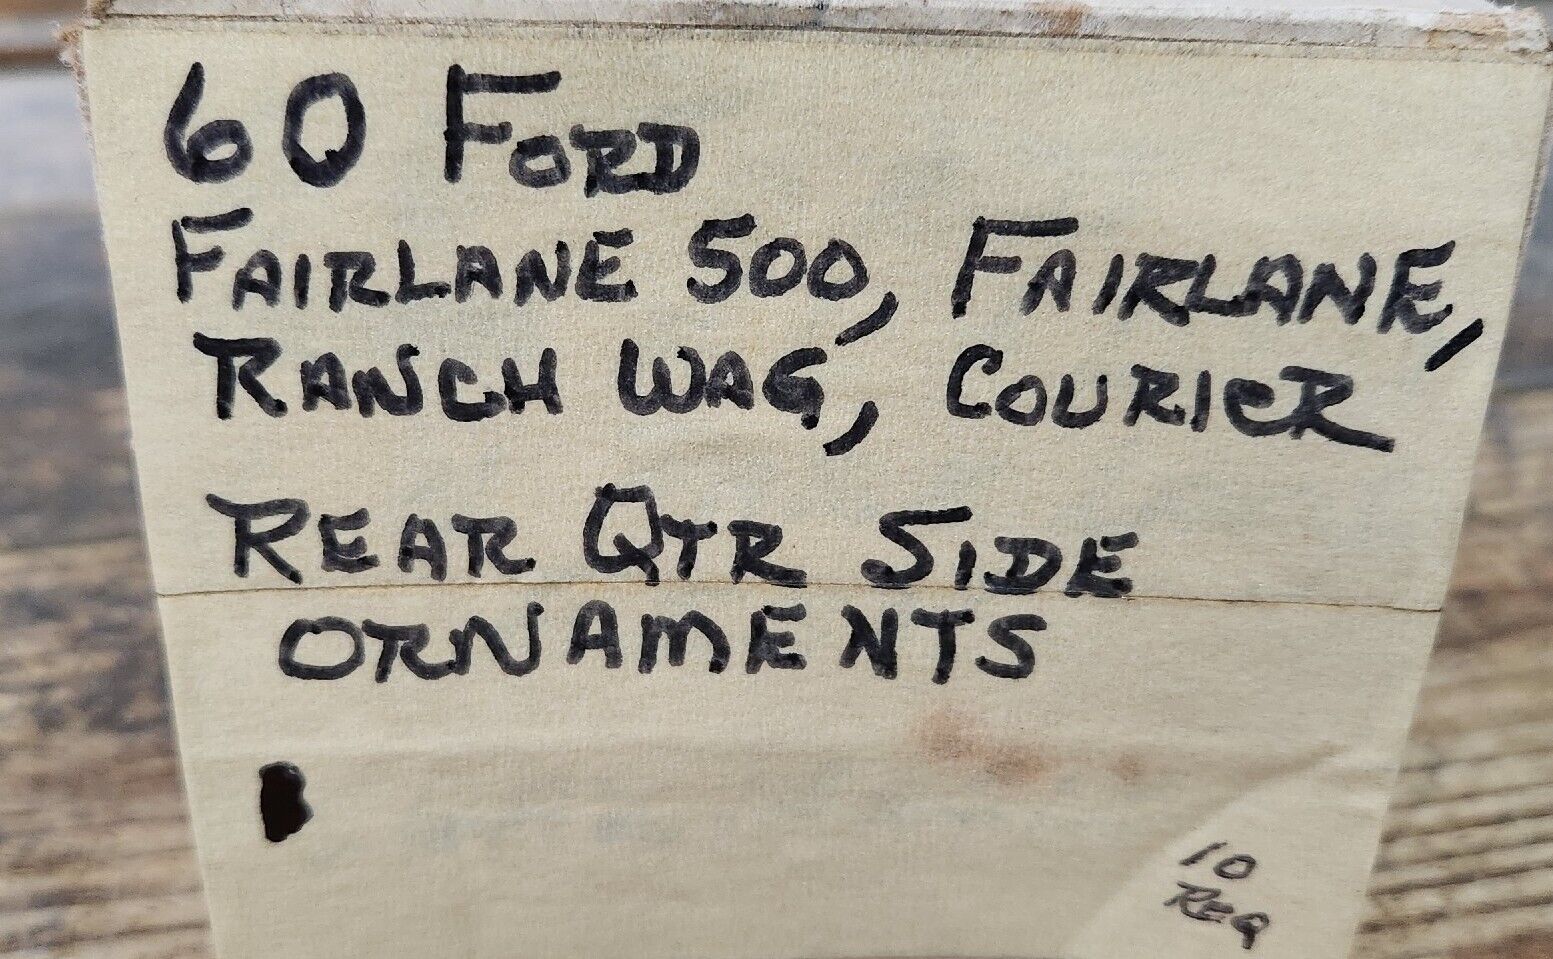 60 FORD
FAIRLANE 500, FAIRLANE,
RANCH WAG, COURIER
REAR QTR SIDE
ORNAMENTS
10
REQ